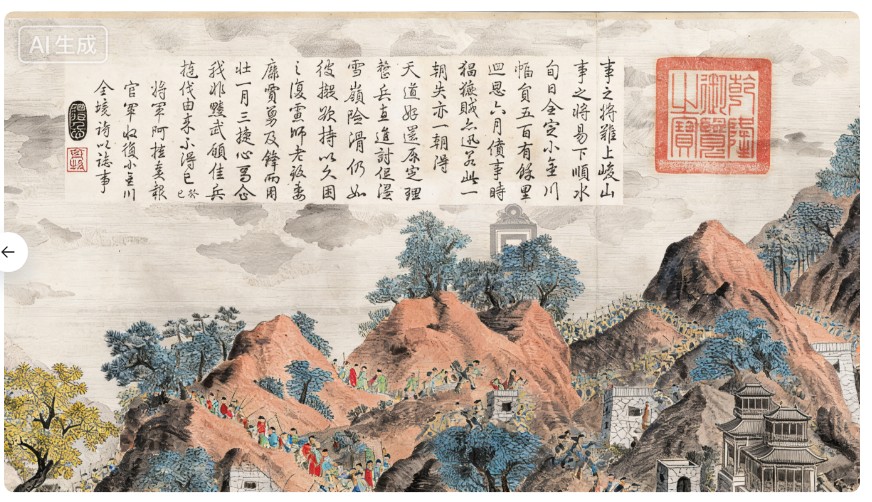 AI生成
乾隆御覽之寶
事之将難上峻山
事之将易下順水
旬日全定小金川
幅員五百有餘里
迴思六月僨事時
猖獗賊迅若此一
朝失亦一朝得
天道好還原定理
整兵直進討促浸
雪嶺險滑仍如
彼擬欲持以久困
之復虞師老致委
靡賈勇及鋒而用
壮一月三捷心焉念
我非黷武願佳兵
撻伐由来不得已
癸巳
将軍阿桂奏報
官軍收復小金川
全境詩以誌事